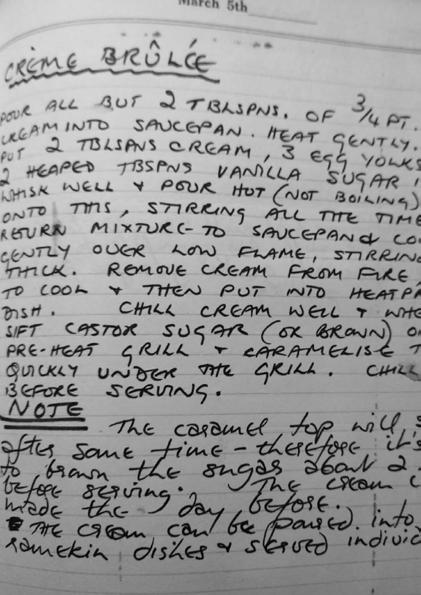 March 5th
CRÈME BRÛLÉE
POUR ALL BUT 2 TBLSPNS. OF 3/4 PT.
CREAM INTO SAUCEPAN. HEAT GENTLY.
PUT 2 TBLSPNS CREAM, 3 EGG YOLKS
2 HEAPED TBSPNS VANILLA SUGAR
WHISK WELL & POUR HOT (NOT BOILING)
ONTO THIS, STIRRING ALL THE TIME
RETURN MIXTURE TO SAUCEPAN & CO
GENTLY OVER LOW FLAME, STIRRING
THICK. REMOVE CREAM FROM FIRE,
TO COOL & THEN PUT INTO HEATPR
DISH. CHILL CREAM WELL & WHE
SIFT CASTOR SUGAR (OR BROWN) O
PRE-HEAT GRILL & CARAMELISE T
QUICKLY UNDER THE GRILL. CHILL
BEFORE SERVING.
NOTE
The caramel top will s
after some time - therefore it's
to brown the sugar about 2
before serving. The cream c
made the day before.
THE CREAM can be poured into
ramekin dishes & served individ